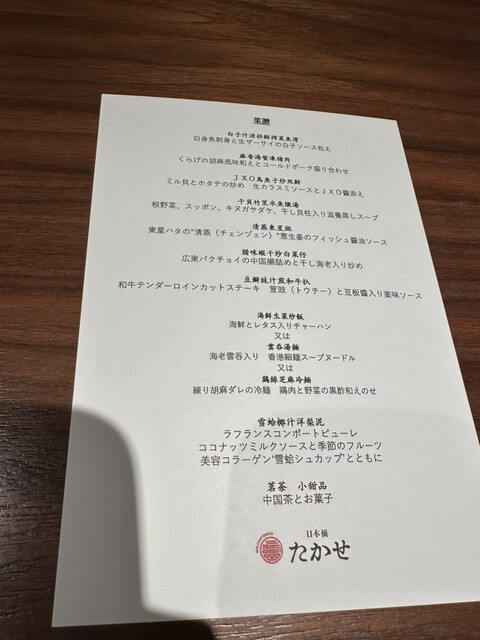 菜譜
白子汁涼拌鮮搾菜魚滑
白身魚刺身と生ザーサイの白子ソース和え
麻香海蜇凍猪肉
くらげの胡麻風味和えとコールドポーク盛り合わせ
JXO烏魚子炒双鮮
ミル貝とホタテの炒め 生カラスミソースとJXO醤添え
干貝竹笙水魚燉湯
根野菜、スッポン、キヌガサダケ、干し貝柱入り滋養蒸しスープ
清蒸東星斑
東星ハタの"清蒸（チェンヅェン）"葱生姜のフィッシュ醤油ソース
腊味蝦干炒白菜仔
広東パクチョイの中国腸詰めと干し海老入り炒め
豆瓣豉汁煎和牛扒
和牛テンダーロインカットステーキ 荳豉（トウチー）と豆板醬入り薬味ソース
海鮮生菜炒飯
海鮮とレタス入りチャーハン
又は
雲呑湯麺
海老雲呑入り 香港細麺スープヌードル
又は
鶏絲芝麻冷麺
練り胡麻ダレの冷麺 鶏肉と野菜の黒酢和えのせ
雪蛤椰汁洋梨泥
ラフランスコンポートピューレ
ココナッツミルクソースと季節のフルーツ
美容コラーゲン'雪蛤シュカップ'とともに
茗茶 小甜品
中国茶とお菓子
日本橋
たかせ